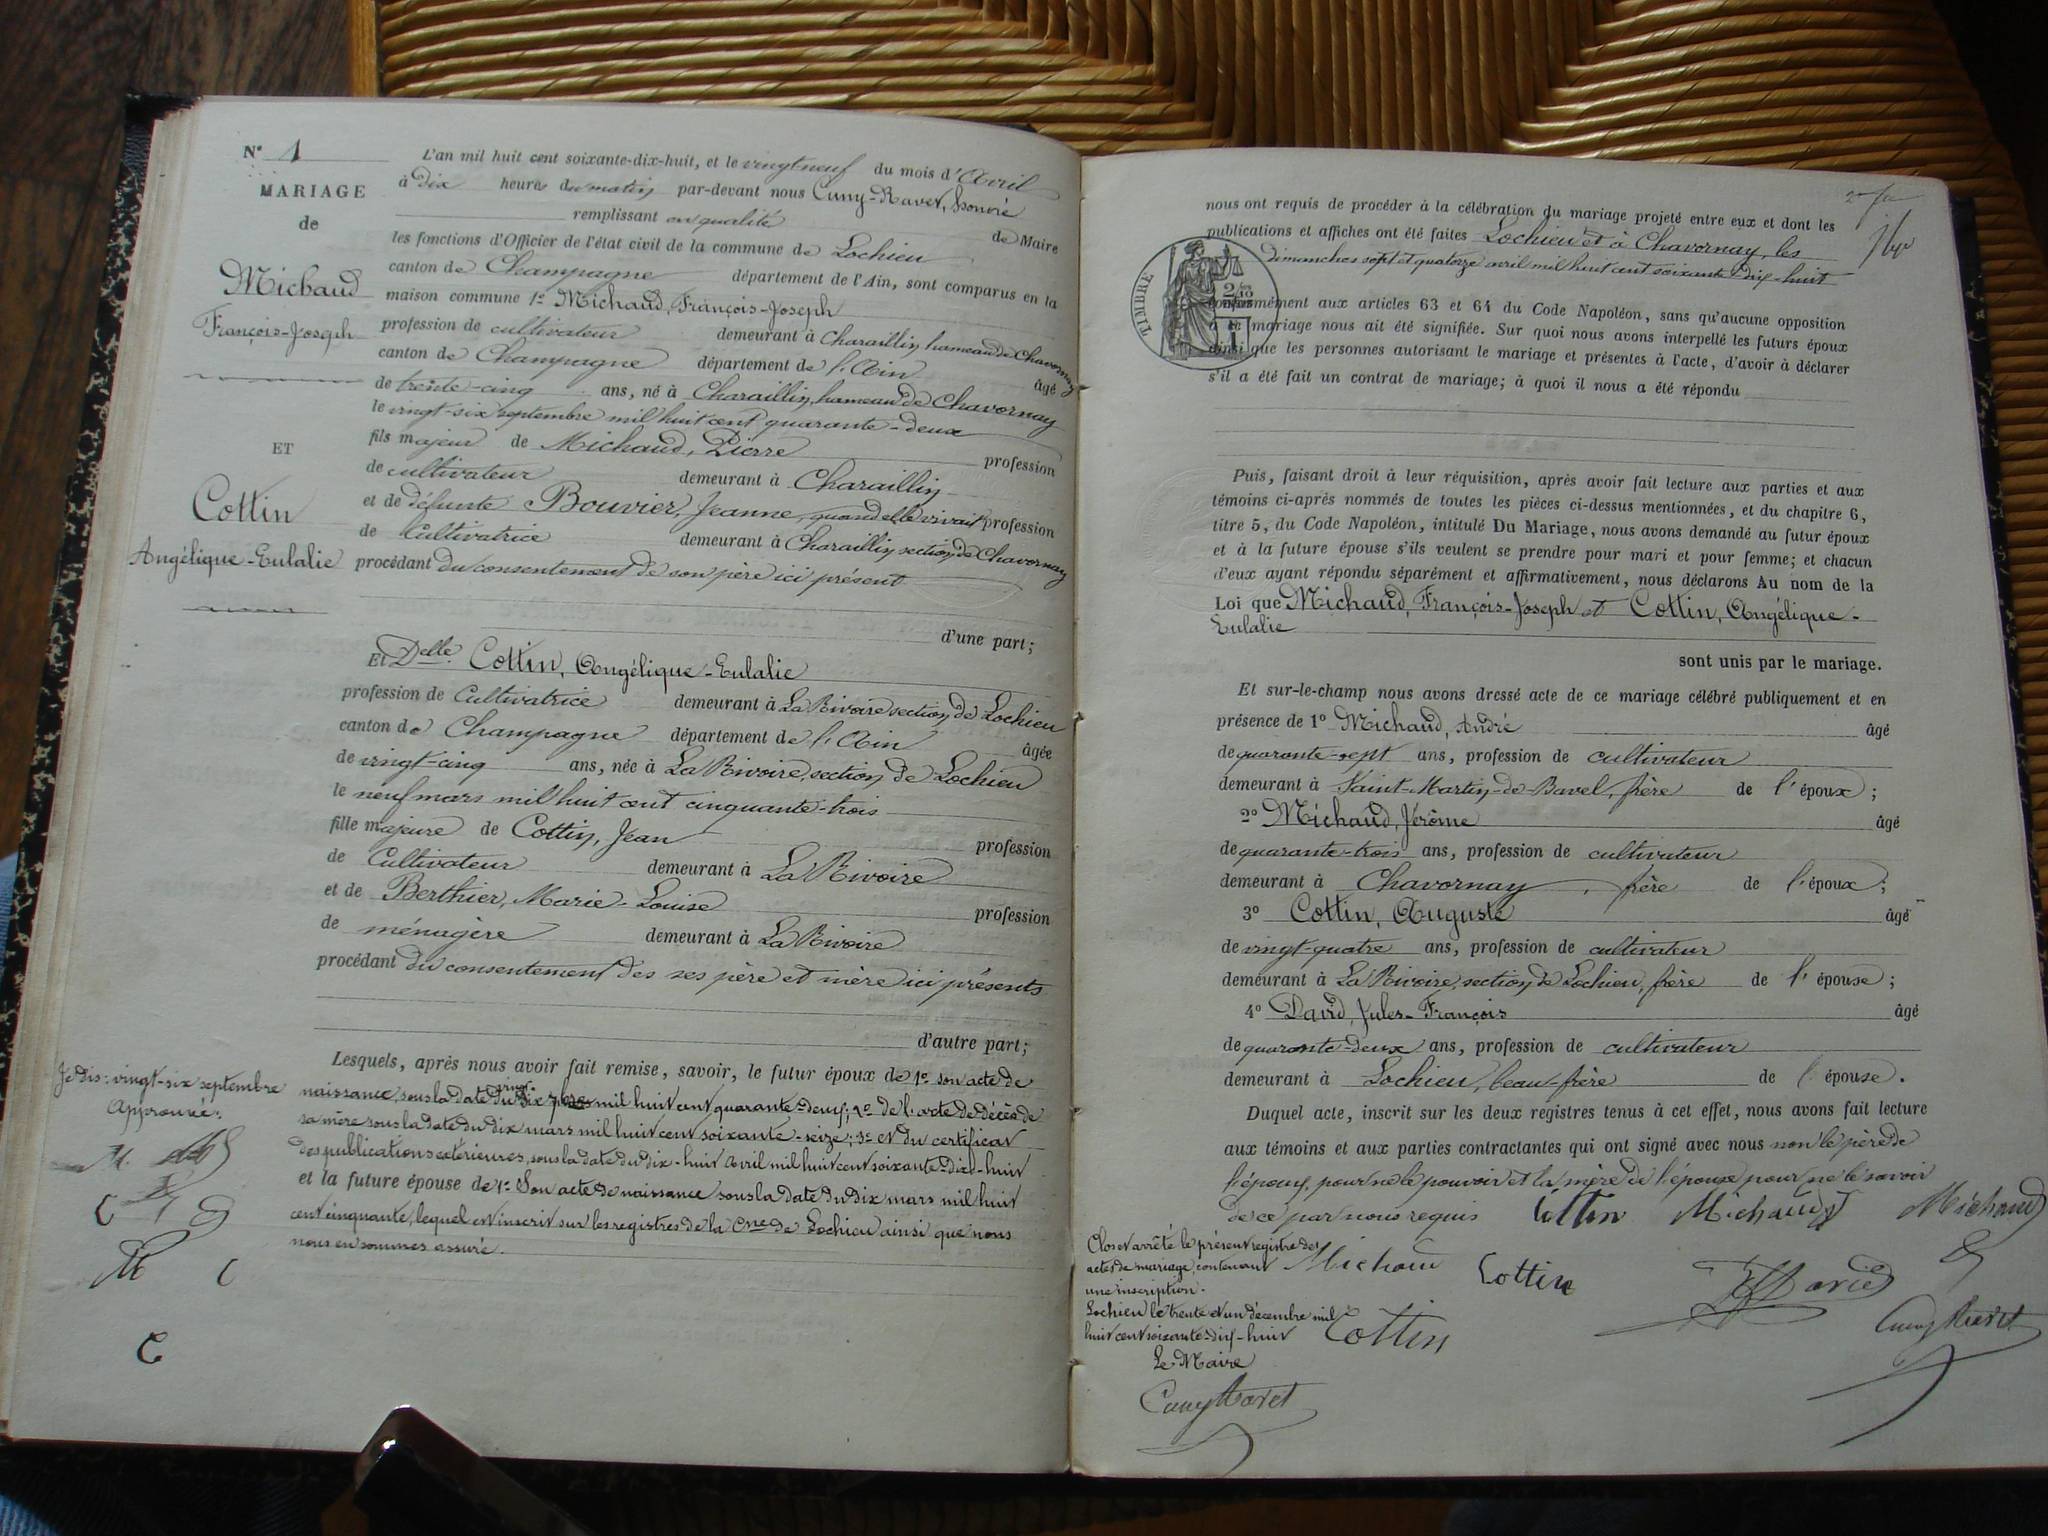 N° 1
MARIAGE
de
Michaud
François-Joseph
ET
Cottin
Angélique-Eulalie
L'an mil huit cent soixante-dix-huit, et le vingt neuf du mois d'Avril
à dix heures du matin par-devant nous Cuny-Ravet, honoré
remplissant en qualité de Maire
les fonctions d'Officier de l'état civil de la commune de Lochieu
canton de Champagne département de l'Ain, sont comparus en la
maison commune 1° Michaud, François-Joseph
profession de cultivateur demeurant à Charaillin, hameau de Chavornay
canton de Champagne département de l'Ain âgé
de trente-cinq ans, né à Charaillin, hameau de Chavornay
le vingt-six septembre mil huit cent quarante-deux
fils majeur de Michaud, Pierre profession
de cultivateur demeurant à Charaillin
et de défunte Bouvier, Jeanne, quand elle vivait profession
de Cultivatrice demeurant à Charaillin section de Chavornay
procédant du consentement de son père ici présent
d'une part;
Et Delle Cottin, Angélique-Eulalie
profession de Cultivatrice demeurant à La Rivoire section de Lochieu
canton de Champagne département de l'Ain âgée
de vingt-cinq ans, née à La Rivoire, section de Lochieu
le neuf mars mil huit cent cinquante-trois
fille majeure de Cottin, Jean profession
de Cultivateur demeurant à La Rivoire
et de Berthier, Marie-Louise profession
de ménagère demeurant à La Rivoire
procédant du consentement des ses père et mère ici présents
d'autre part;
Lesquels, après nous avoir fait remise, savoir, le futur époux de 1° son acte de
naissance, sous la date du vingt-six mil huit cent quarante-deux; 2° de l'acte de décès de
sa mère sous la date du dix mars mil huit cent soixante-seize; 3° et du certificat
des publications extérieures, sous la date du dix-huit Avril mil huit cent soixante-dix-huit
et la future épouse de 1° Son acte de naissance sous la date du dix mars mil huit
cent cinquante, lequel est inscrit sur les registres de la Cne de Lochieu ainsi que nous
nous en sommes assuré.
Je dis: vingt-six septembre
Approuvé:
M.
C
M C
C
nous ont requis de procéder à la célébration du mariage projeté entre eux et dont les
publications et affiches ont été faites Lochieu et à Chavornay, les
dimanches sept et quatorze avril mil huit cent soixante-dix-huit
TIMBRE
conformément aux articles 63 et 64 du Code Napoléon, sans qu'aucune opposition
à ce mariage nous ait été signifiée. Sur quoi nous avons interpellé les futurs époux
ainsi que les personnes autorisant le mariage et présentes à l'acte, d'avoir à déclarer
s'il a été fait un contrat de mariage; à quoi il nous a été répondu
Puis, faisant droit à leur réquisition, après avoir fait lecture aux parties et aux
témoins ci-après nommés de toutes les pièces ci-dessus mentionnées, et du chapitre 6,
titre 5, du Code Napoléon, intitulé Du Mariage, nous avons demandé au futur époux
et à la future épouse s'ils veulent se prendre pour mari et pour femme; et chacun
d'eux ayant répondu séparément et affirmativement, nous déclarons Au nom de la
Loi que Michaud, François-Joseph et Cottin, Angélique-
Eulalie
sont unis par le mariage.
Et sur-le-champ nous avons dressé acte de ce mariage célébré publiquement et en
présence de 1° Michaud, André âgé
de quarante-sept ans, profession de cultivateur
demeurant à Saint-Martin-de-Bavel, frère de l'époux;
2° Michaud, Jérôme âgé
de quarante-trois ans, profession de cultivateur
demeurant à Chavornay, frère de l'époux;
3° Cottin, Auguste âgé
de vingt-quatre ans, profession de cultivateur
demeurant à La Rivoire, section de Lochieu, frère de l'épouse;
4° David, Jules-François âgé
de quarante-deux ans, profession de cultivateur
demeurant à Lochieu, beau-frère de l'épouse.
Duquel acte, inscrit sur les deux registres tenus à cet effet, nous avons fait lecture
aux témoins et aux parties contractantes qui ont signé avec nous non le père de
l'époux, pour ne le pouvoir et la mère de l'épouse pour ne le savoir
de ce par nous requis Cottin Michaud Michaud
Michaud Cottin David
Cottin Cuny Ravet
Clos et arrêté le présent registre des
actes de mariage, contenant
une inscription.
Lochieu le trente et un décembre mil
huit cent soixante-dix-huit
Le Maire
Cuny Ravet